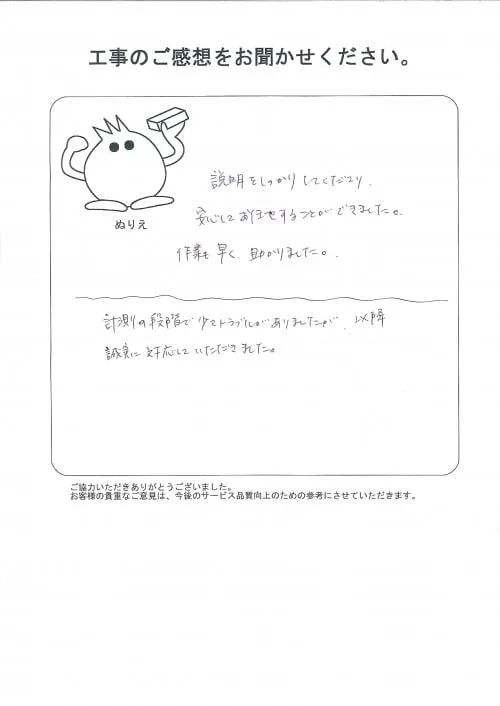 工事のご感想をお聞かせください。
ぬりえ
説明をしっかりしてくださり、
安心してお任せすることができました。
作業も早く、助かりました。
計測の段階で少々トラブルがありましたが、以降
誠実に対応していただきました。
ご協力いただきありがとうございました。
お客様の貴重なご意見は、今後のサービス品質向上のための参考にさせていただきます。